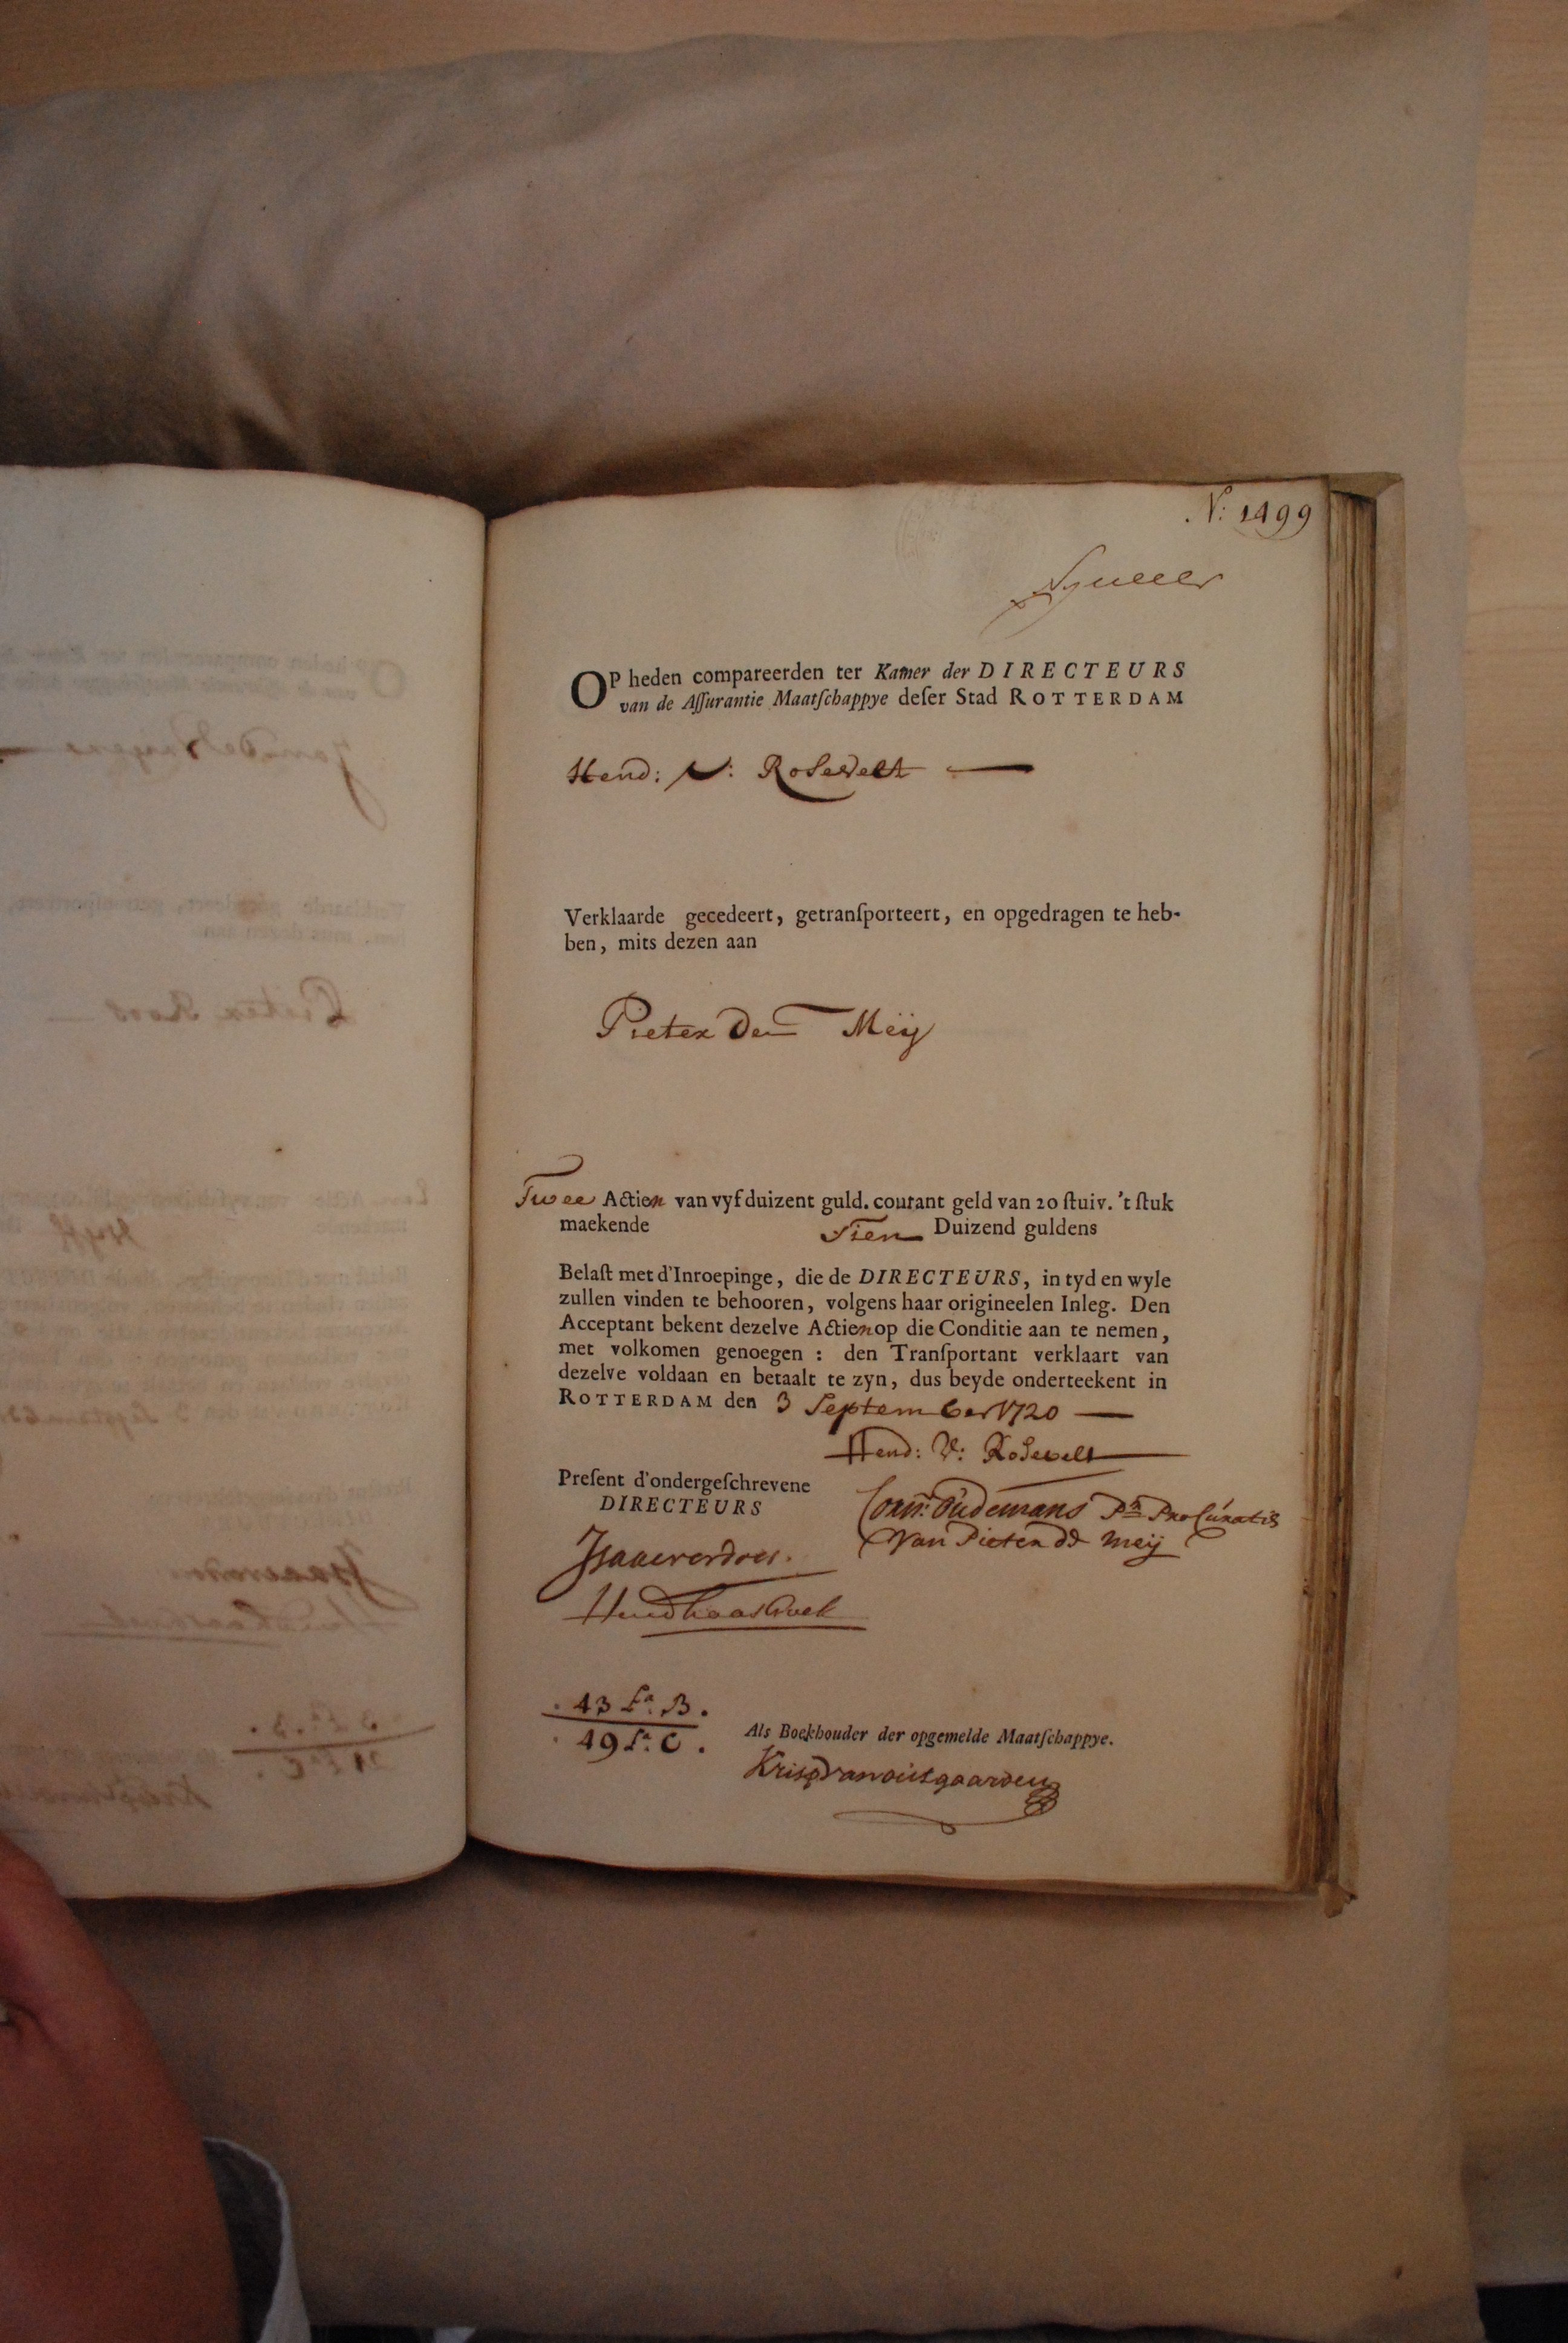 N: 1499
OP heden compareerden ter Kamer der DIRECTEURS
van de Aſſurantie Maatſchappye deſer Stad ROTTERDAM
Hend: V: Rosevelt
Verklaarde gecedeert, getranſporteert, en opgedragen te heb-
ben, mits dezen aan
Pieter De Meij
Twee Actien van vyf duizent guld. courant geld van 20 ſtuiv. 't ſtuk
maekende Tien Duizend guldens
Belaſt met d'Inroepinge, die de DIRECTEURS, in tyd en wyle
zullen vinden te behooren, volgens haar origineelen Inleg. Den
Acceptant bekent dezelve Actien op die Conditie aan te nemen,
met volkomen genoegen : den Tranſportant verklaart van
dezelve voldaan en betaalt te zyn, dus beyde onderteekent in
ROTTERDAM den 3 September 1720
Hend: V: Rosevelt
Preſent d'ondergeſchrevene
DIRECTEURS
Corn: Oudemans Pr Procuratis
Van Pieter de Meij
Isaac verdoes.
Hend haaswel
43 La. B.
49 La. C.
Als Boekhouder der opgemelde Maatſchappye.
Krisp van outgaarden